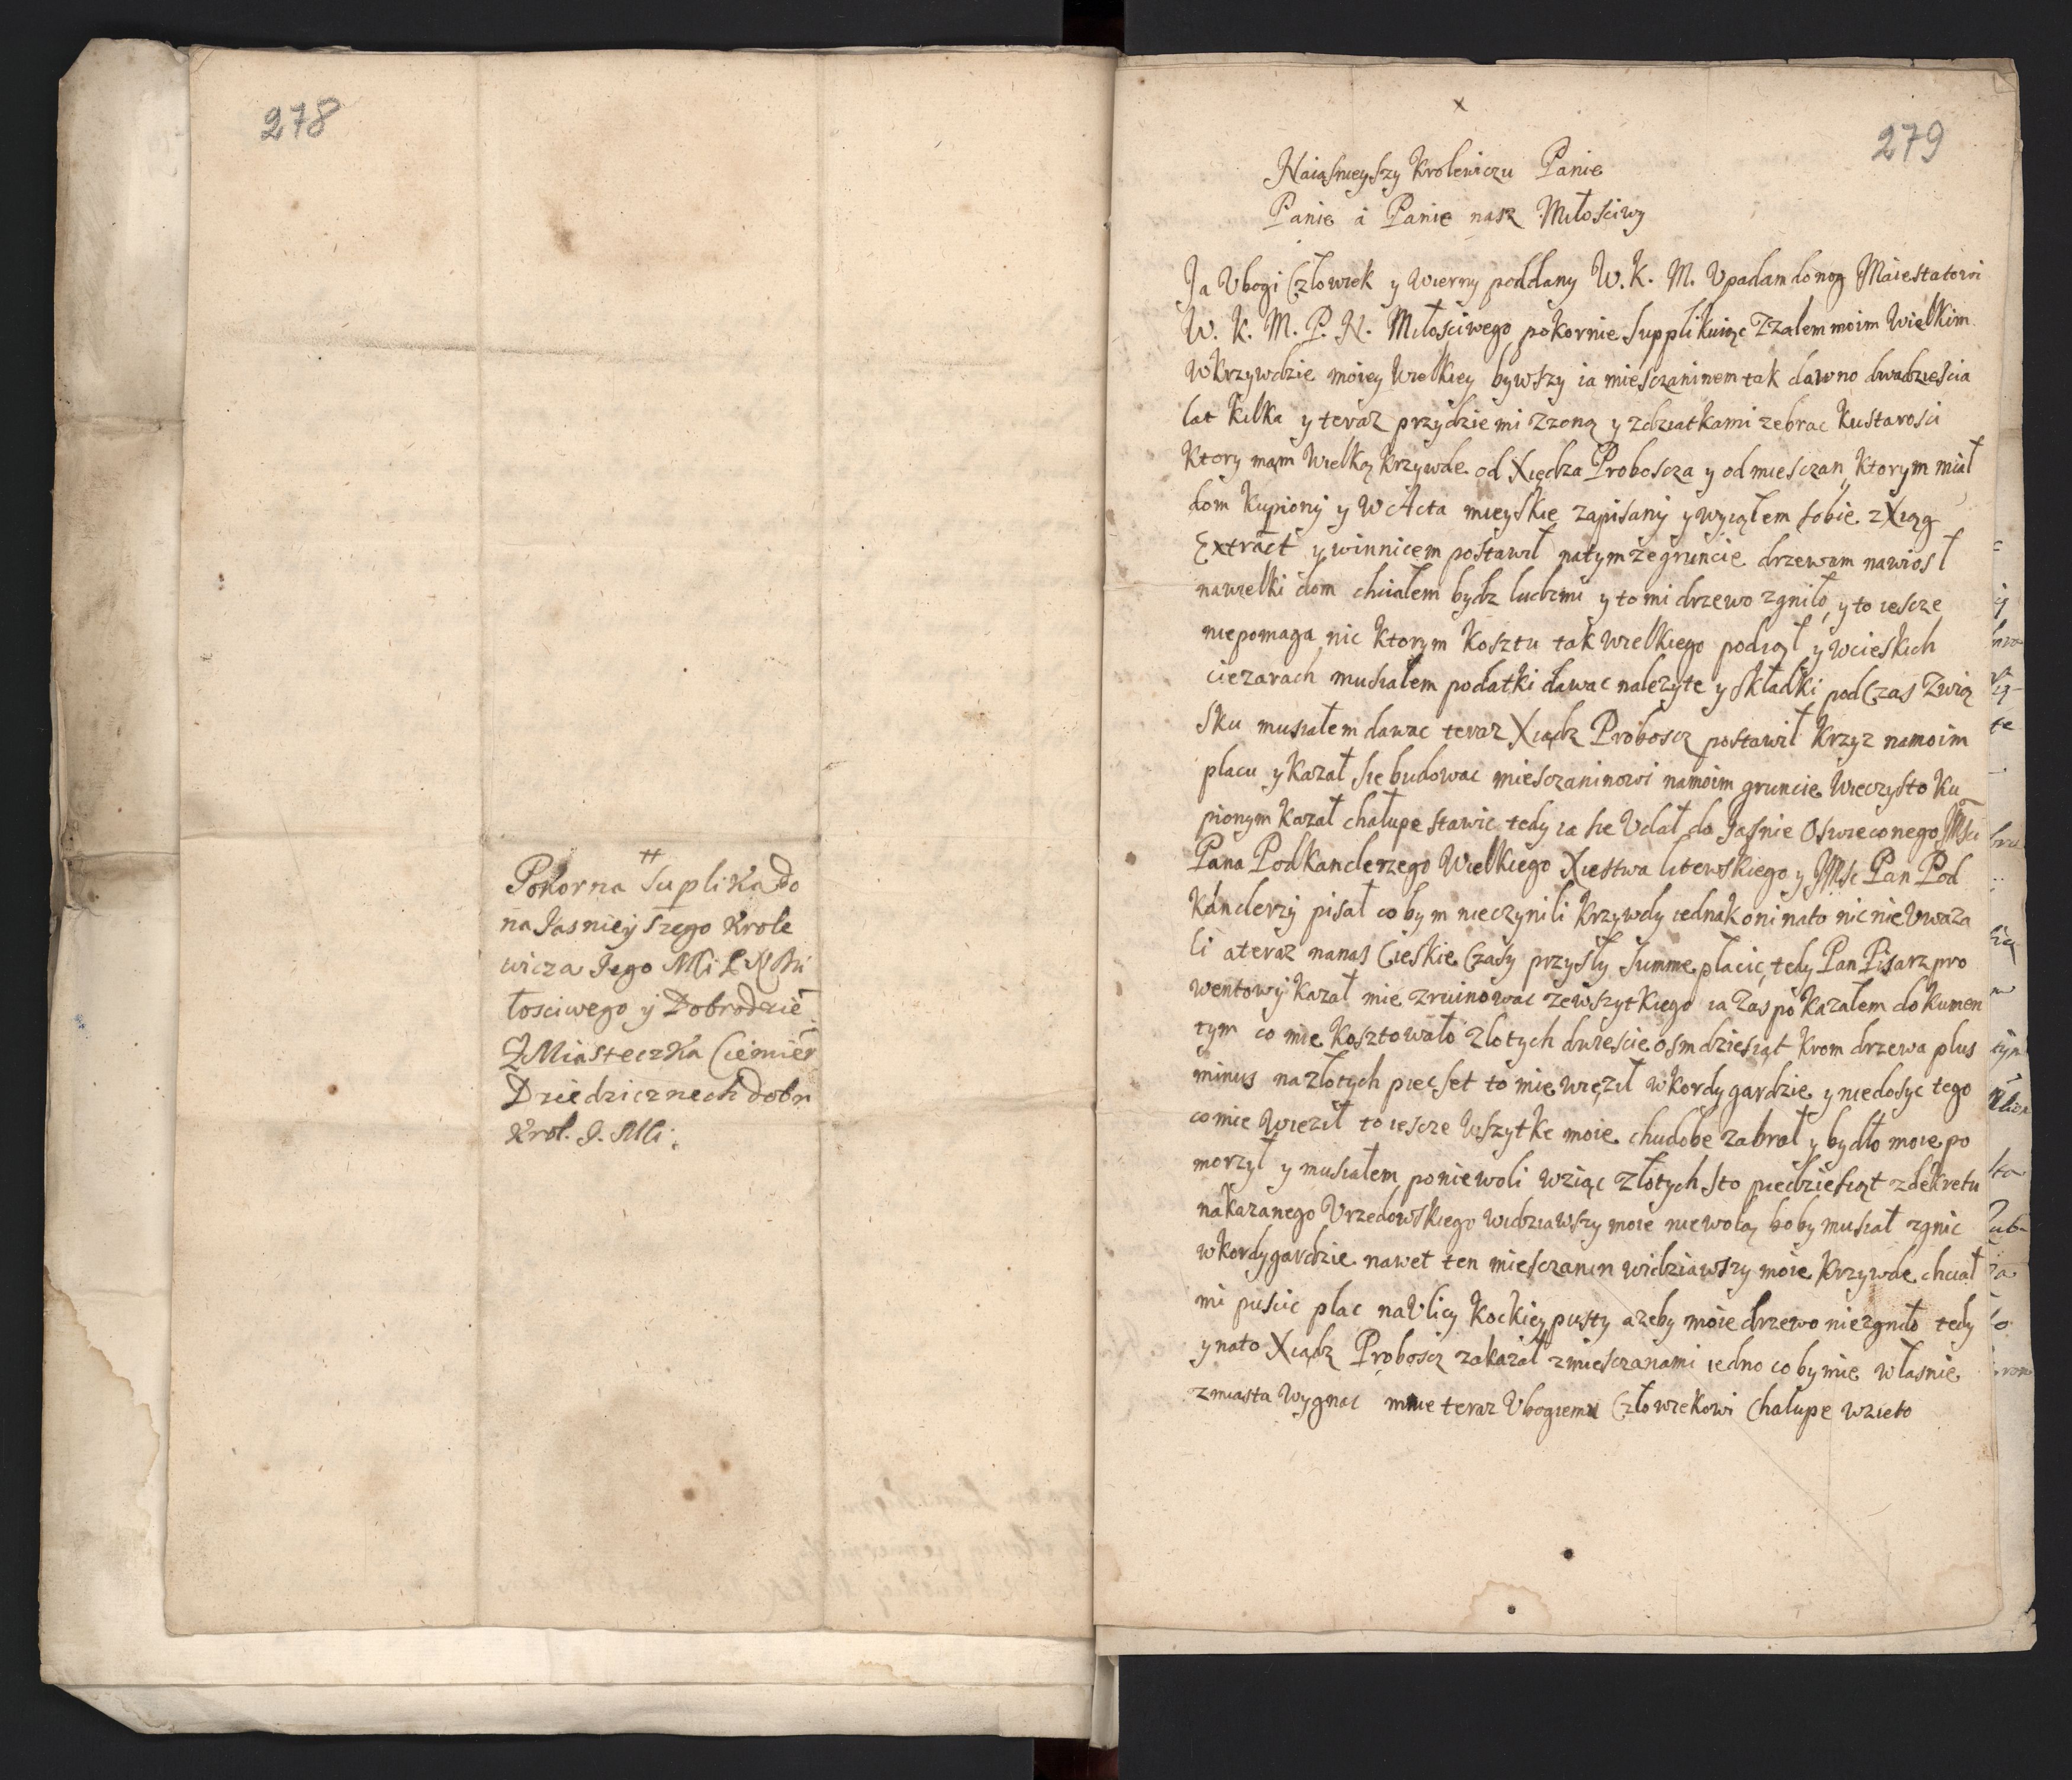 278
++
Pokorna Suplika do
na Jasnieÿszego Krole
wicza Jego Mći P. N. Mi
łosciwego ÿ Dobrodzie
Z Miasteczka Ciemier
Dziedzicznech dobr
Krol. J. Mći.
x
279
Naiasnieyszy Krolewiczu Panie
Panie a Panie nasz Miłosciwy
Ja Vbogi Człowiek y wierny poddany W. K. M. Vpadam do nog Maiestatowi
W. K. M. P. N. Miłosciwego pokornie Supplikuiąc Zzalem moim Wielkim
W Krzywdzie moiey Wielkiey bywszy ia miesczaninem tak dawno dwadziescia
lat Kilka y teraz przydzie mi zzoną y zdziatkami zebrac Kustarosci
Ktory mam Wielką Krzywde od Xiędza Proboscza y od miesczan Ktorym miał
dom Kupiony y W Acta mieyskie zapisany y wyiąłem sobie z Xiąg
Extract y winnicem postawił natymze gruncie drzewam nawiosł
nawielki dom chciałem bydz ludzmi y to mi drzewo zgniło y to iescze
niepomaga nic Ktorym Kosztu tak wielkiego podioł y wcieskich
ciezarach musiałem podatki dawac nalezyte y składki pod Czas Zwią
sku musiałem dawac teraz Xiądz Proboscz postawił Krzyz namoim
placu y Kazał sie budowac miesczaninowi namoim gruncie Wieczysto Ku
pionym Kazał chałupe stawic tedy ia sie Vdał do Jasnie Oswieconego JMSci
Pana Podkanclerzego Wielkiego Xiestwa litewskiego y JMSc Pan Pod
Kanclerzy pisał coby m nieczynili Krzywdy iednak oni nato nic nie Vwaza
li a teraz nanas Cieskie Czasy przysły Summe płacic tedy Pan Pisarz pro
wentowy Kazał mie zruinowac zewszytkiego ia Zas pokazałem dokumen
tym co mie Kosztowało złotych dwiescie osmdziesiąt Krom drzewa plus
minus na złotych piecset to mie więził w kordygardzie y niedosyc tego
co mie Wieził to iescze Wszytke moie chudobe zabrał y bydło moie po
morzył y musiałem poniewoli wziąc złotych sto piedziesiąt z dekretu
nakazanego Vrzedowskiego widziawszy moie niewolą boby musiał zgnic
w kordygardzie nawet ten miesczanin widziawszy moie Krzywde chciał
mi puscic plac na Vlicy Kockiey pusty azeby moie drzewo niezgniło tedy
y nato Xiądz Proboscz zakazał zmiesczanami iedno coby mie własnie
zmiasta Wygnac mnie teraz Vbogiemu Człowiekowi Chałupe wzieto